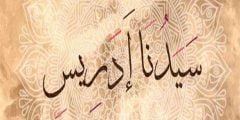 سَيِّدُنَا إِدْرِيسَ